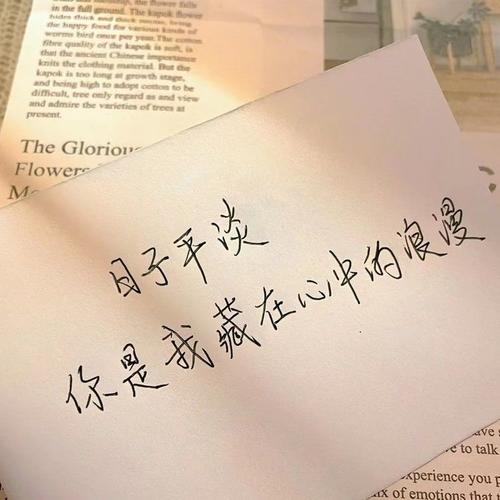 in the full ground. The kapok flower
hides thick and thick
the happy food for various kinds of
worms bird once per year. The cotton
fibre quality of the kapok is soft, is
that the ancient Chinese importance
knits the clothing material. But the
kapok is too long at growth stage,
and being high to adopt cotton to be
difficult, tree only regard as and view
and admire the varieties of trees at
present.
The Glorious
Flowers
日子平淡
你是我藏在心中的浪漫
to talk
experience you
of emotions that